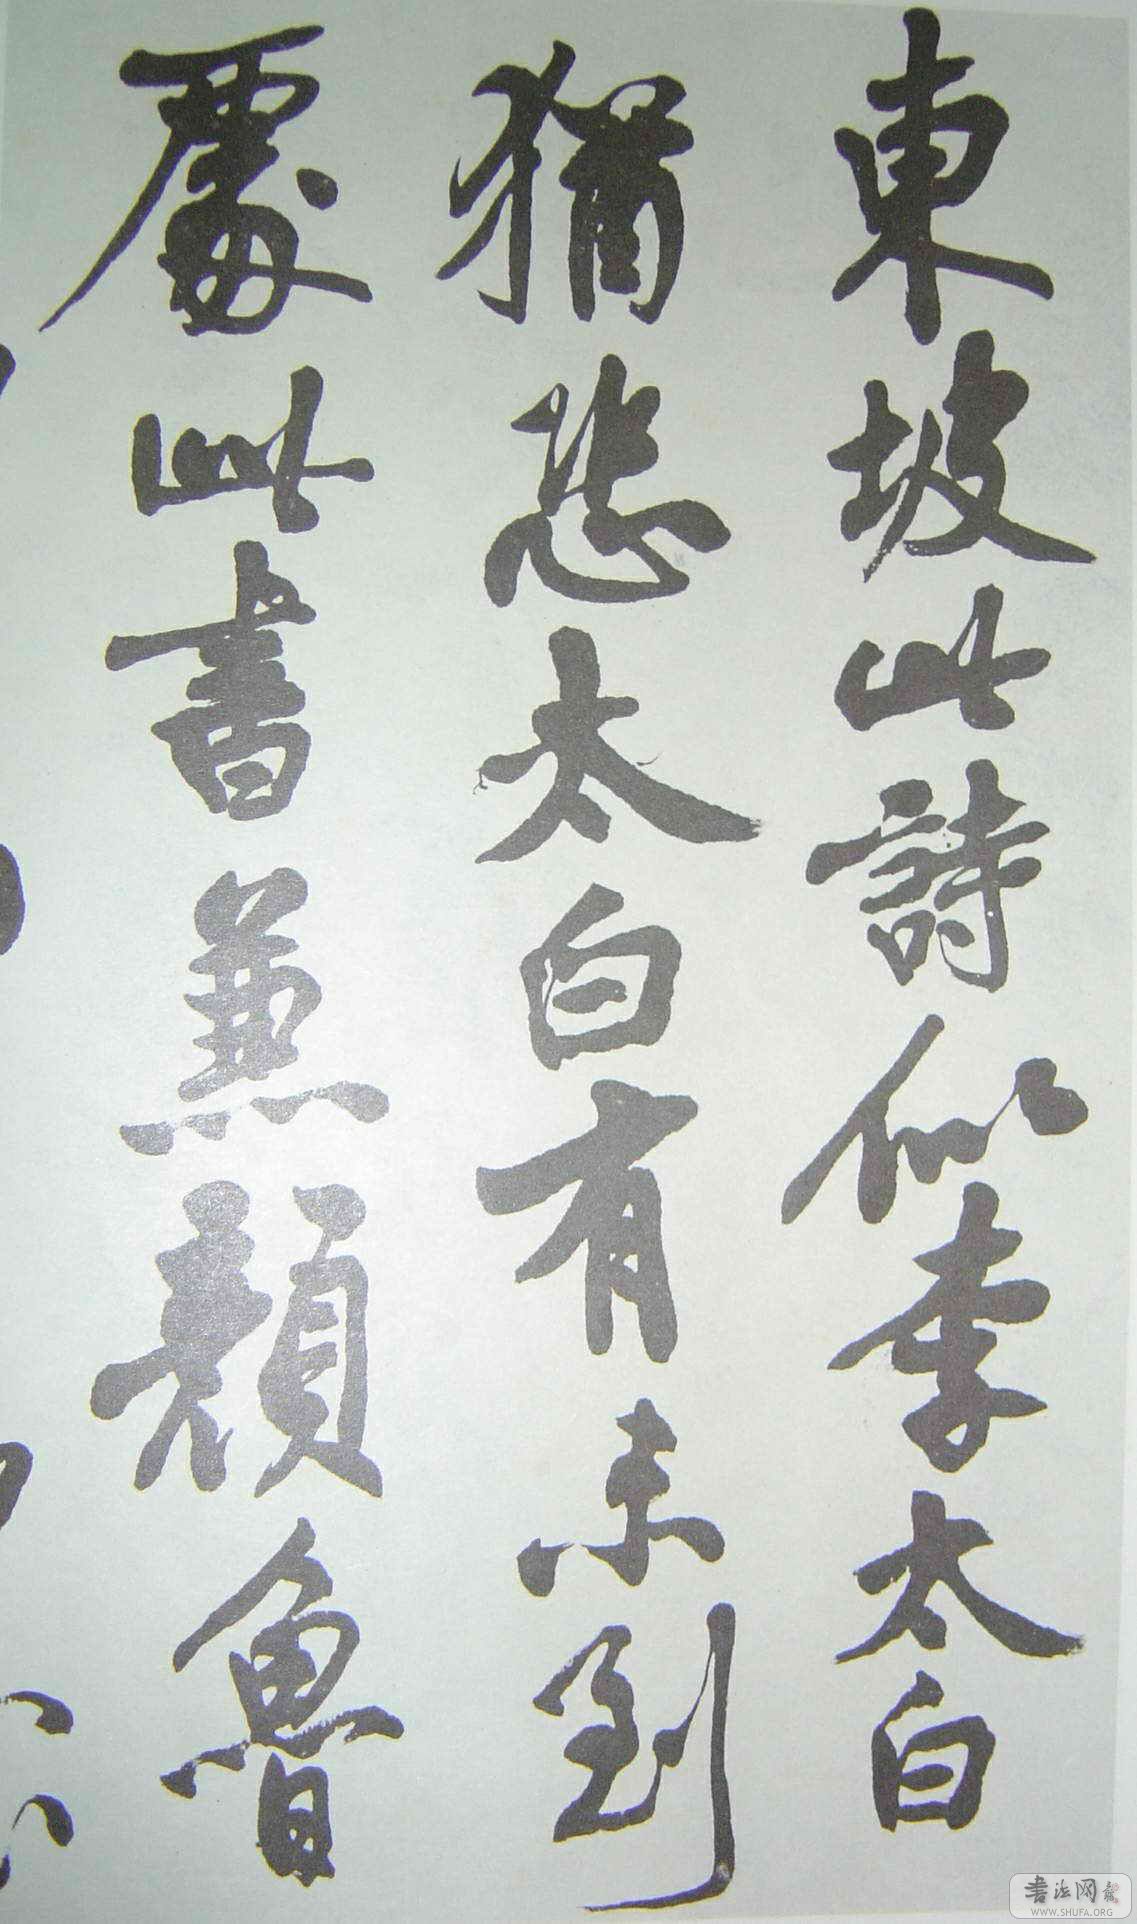 東坡此詩似李太白
猶恐太白有未到
處此書兼顏魯
書法网
WWW.SHUFA.ORG